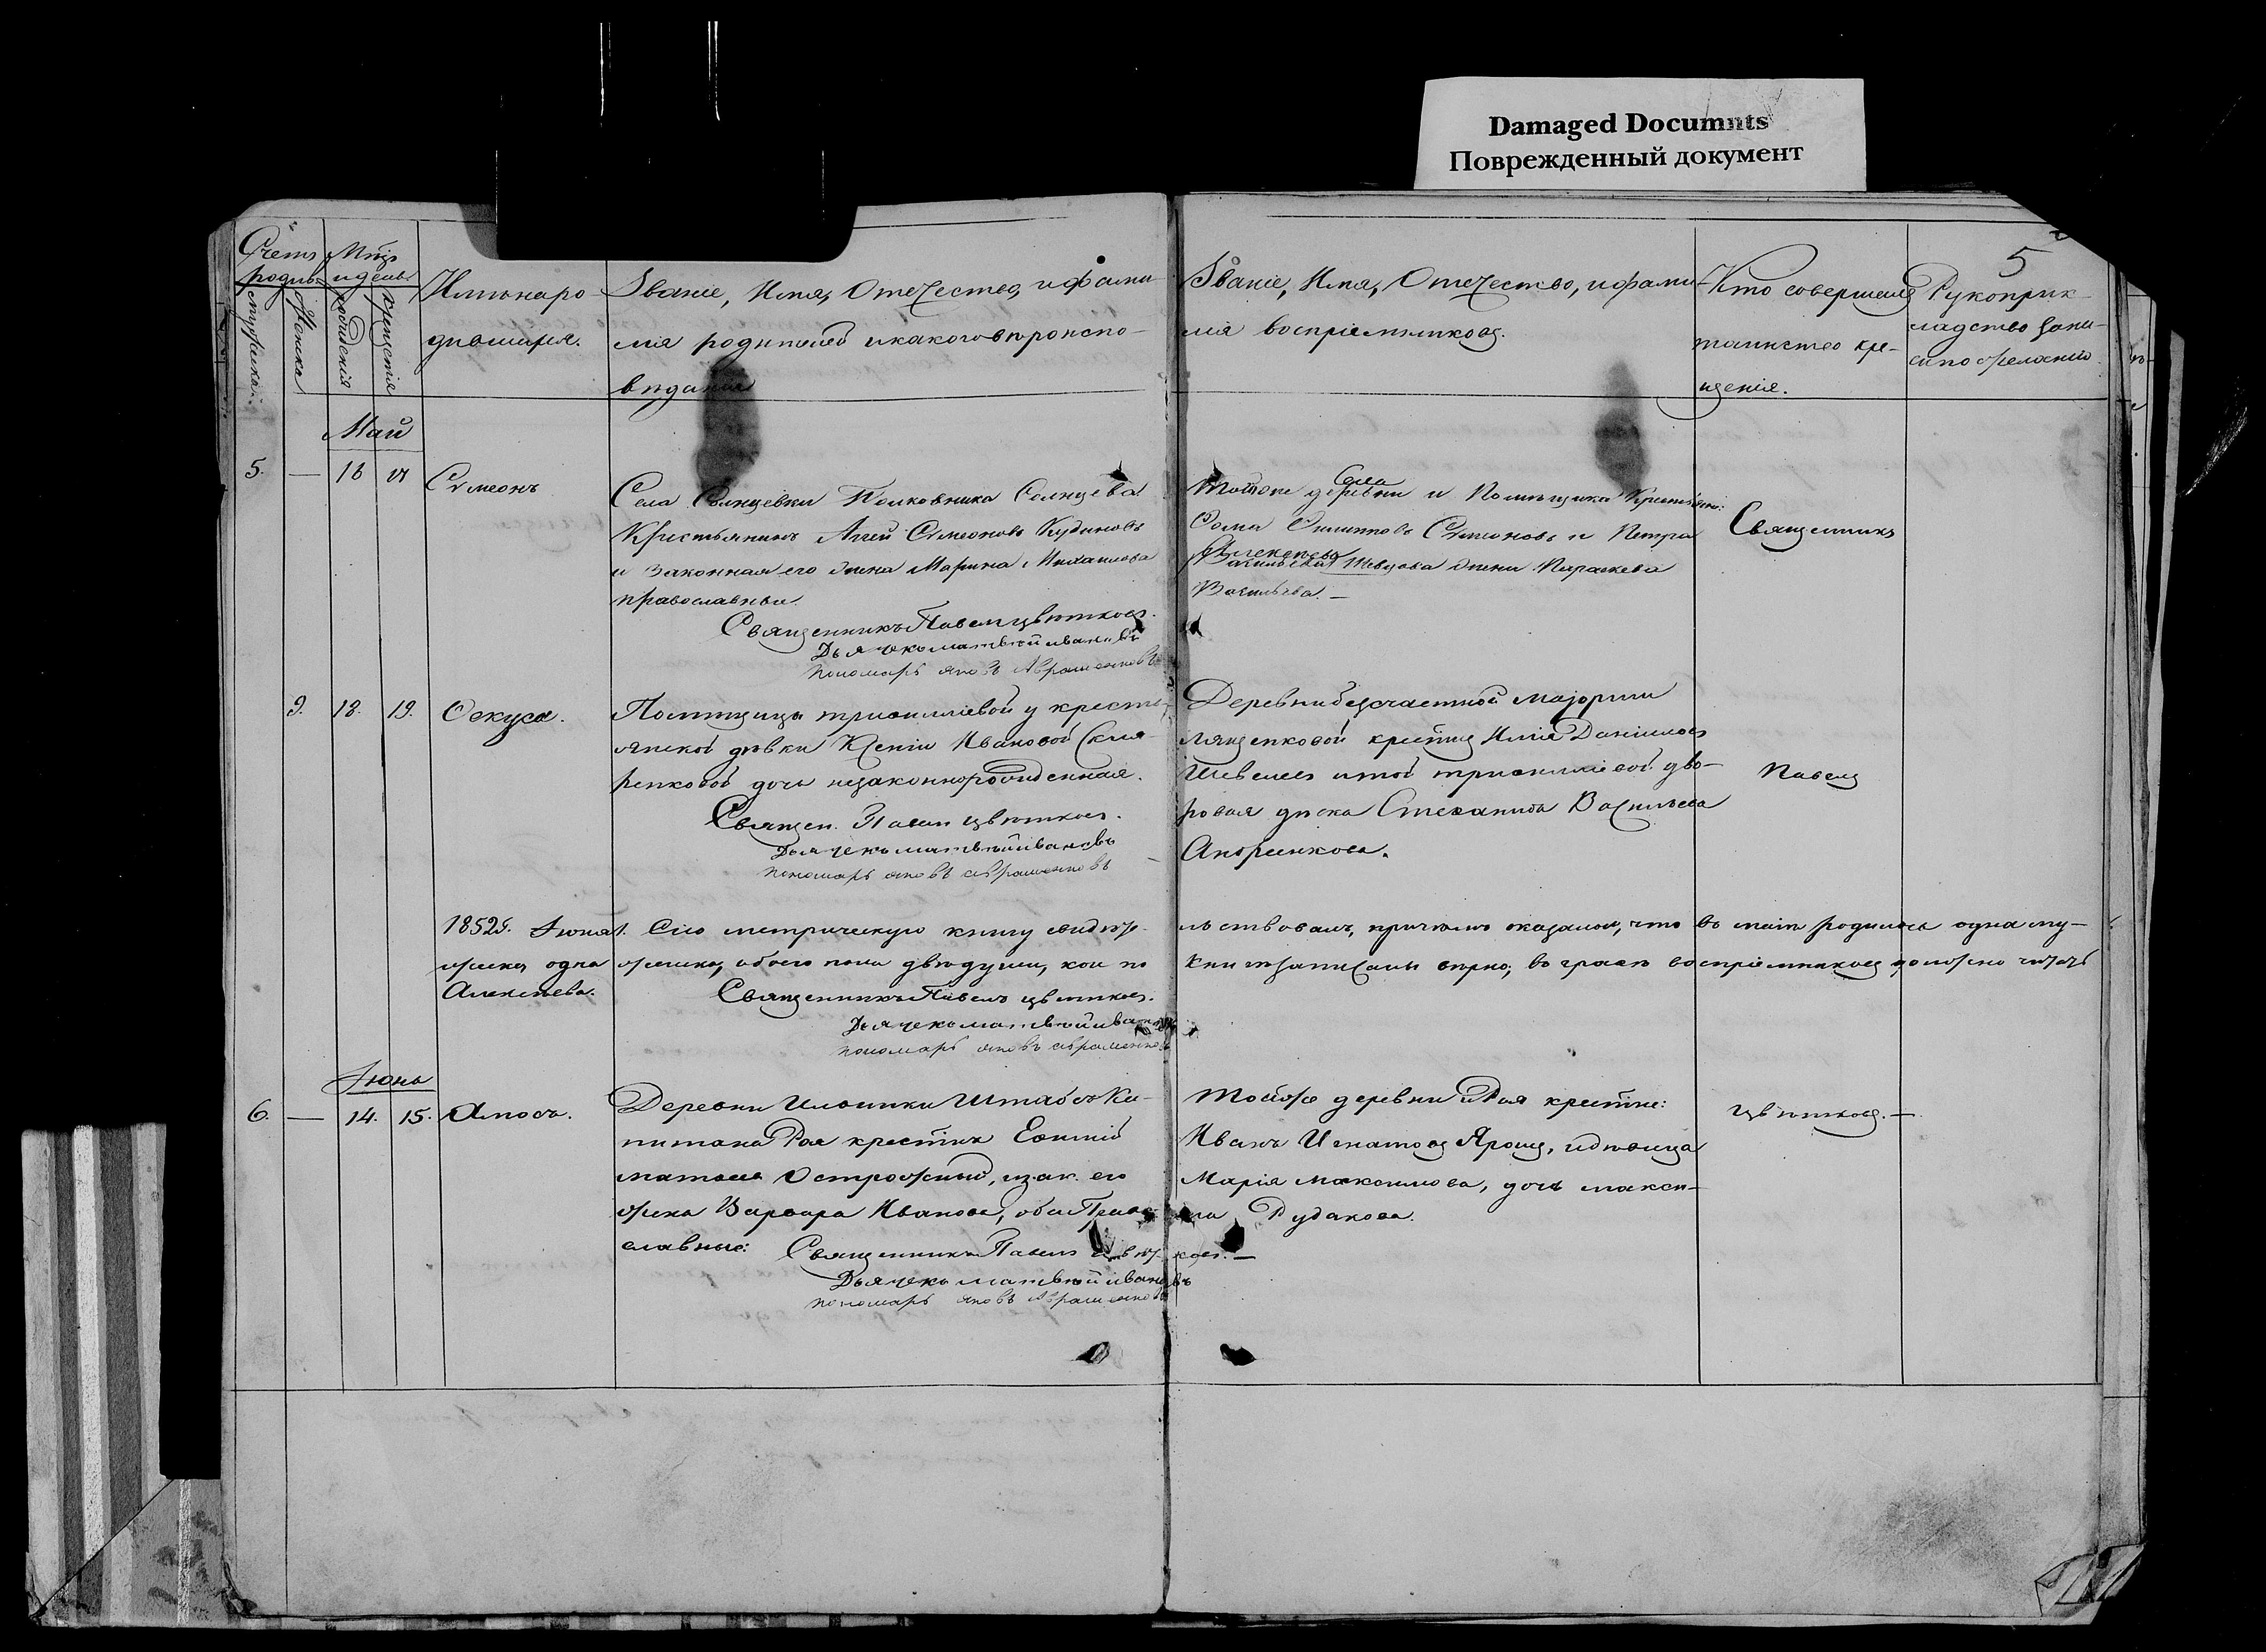 Damaged Documnts
Поврежденный документ
5
Счетъ родив.
мужеска.
Женска
Мѣц. и день.
рожденія
крещенія
Имя наро-
дившихся.
Званіе, Имя, Отечество, и фами-
лія родителей и какого вѣроиспо-
вѣданія
Званіе, Имя, Отечество, и фами-
лія воспріемниковъ.
Кто совершалъ
таинство кре-
щенія.
Рукоприк-
ладство запи-
си по желанію
Май
5. — 16 17 Сѵмеонъ
Села Солнцевки Полковника Солнцева
Крестьянинъ Аггей Сѵмеоновъ Кудиновъ
и законная его жена Марина Михаилова
православные.
Священникъ Павелъ Цвѣтковъ.
Дьячекъ Матвѣй Ивановъ
Пономарь Яковъ Авраменковъ
Тойже деревни Села и Помѣщика Крестьяне:
Сѵмеоновъ и Петра
Алексѣева
Васильева Шевцова жена Параскева
Васильева. —
Священникъ
9. 18. 19. Ѳекуса.
Помѣщицы у кресть-
янской дѣвки Ксеніи Ивановой Скля-
ренковой дочь незаконнорожденная.
Священ. Павелъ Цвѣтковъ.
Дьячекъ Матвѣй Ивановъ
Пономарь Яковъ Авраменковъ
Деревни Безсчастной Маіорши
Лященковой крестян. Илія Даніиловъ
Шевелевъ и той дво-
ровая дѣвка Стефанида Васильева
Андреенкова.
Павелъ
1852 г. Іюня 1. Сію метрическую книгу свидѣте-
льствовалъ, причемъ оказалось, что въ маіѣ родилось одна му-
жеска, одна женска, обоего пола двѣ души, кои по
книгѣ записаны вѣрно; въ графѣ воспріемниковъ должно читать
Алексѣева.
Священникъ Павелъ Цвѣтковъ.
Дьячекъ Матвѣй Ивановъ
Пономарь Яковъ Авраменковъ
Іюнь
6. — 14. 15. Амосъ.
Деревни Ильинки Штабсъ Ка-
питана Рая крестян. Евтихій
Матвѣевъ Острожный, и зак. его
жена Варвара Иванова, оба Право-
славные:
Священникъ Павелъ Цвѣтковъ. —
Дьячекъ Матвѣй Ивановъ
Пономарь Яковъ Авраменковъ
Тойже деревни и Рая крестяне:
Иванъ Игнатовъ Ярошъ, и дѣвица
Марія Максимова, дочь Макси-
ма Рудакова.
Цвѣтковъ. —